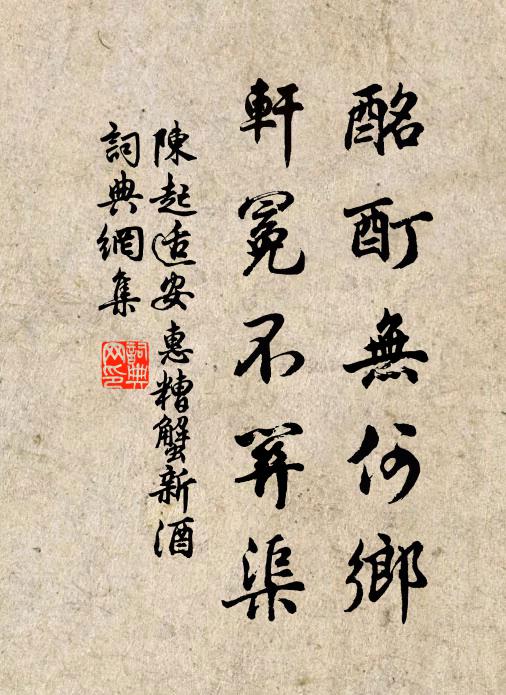 酩酊無何鄉
軒冕不羿渠
陳起适安惠糟蟹新酒
詞典網集
詞典網印